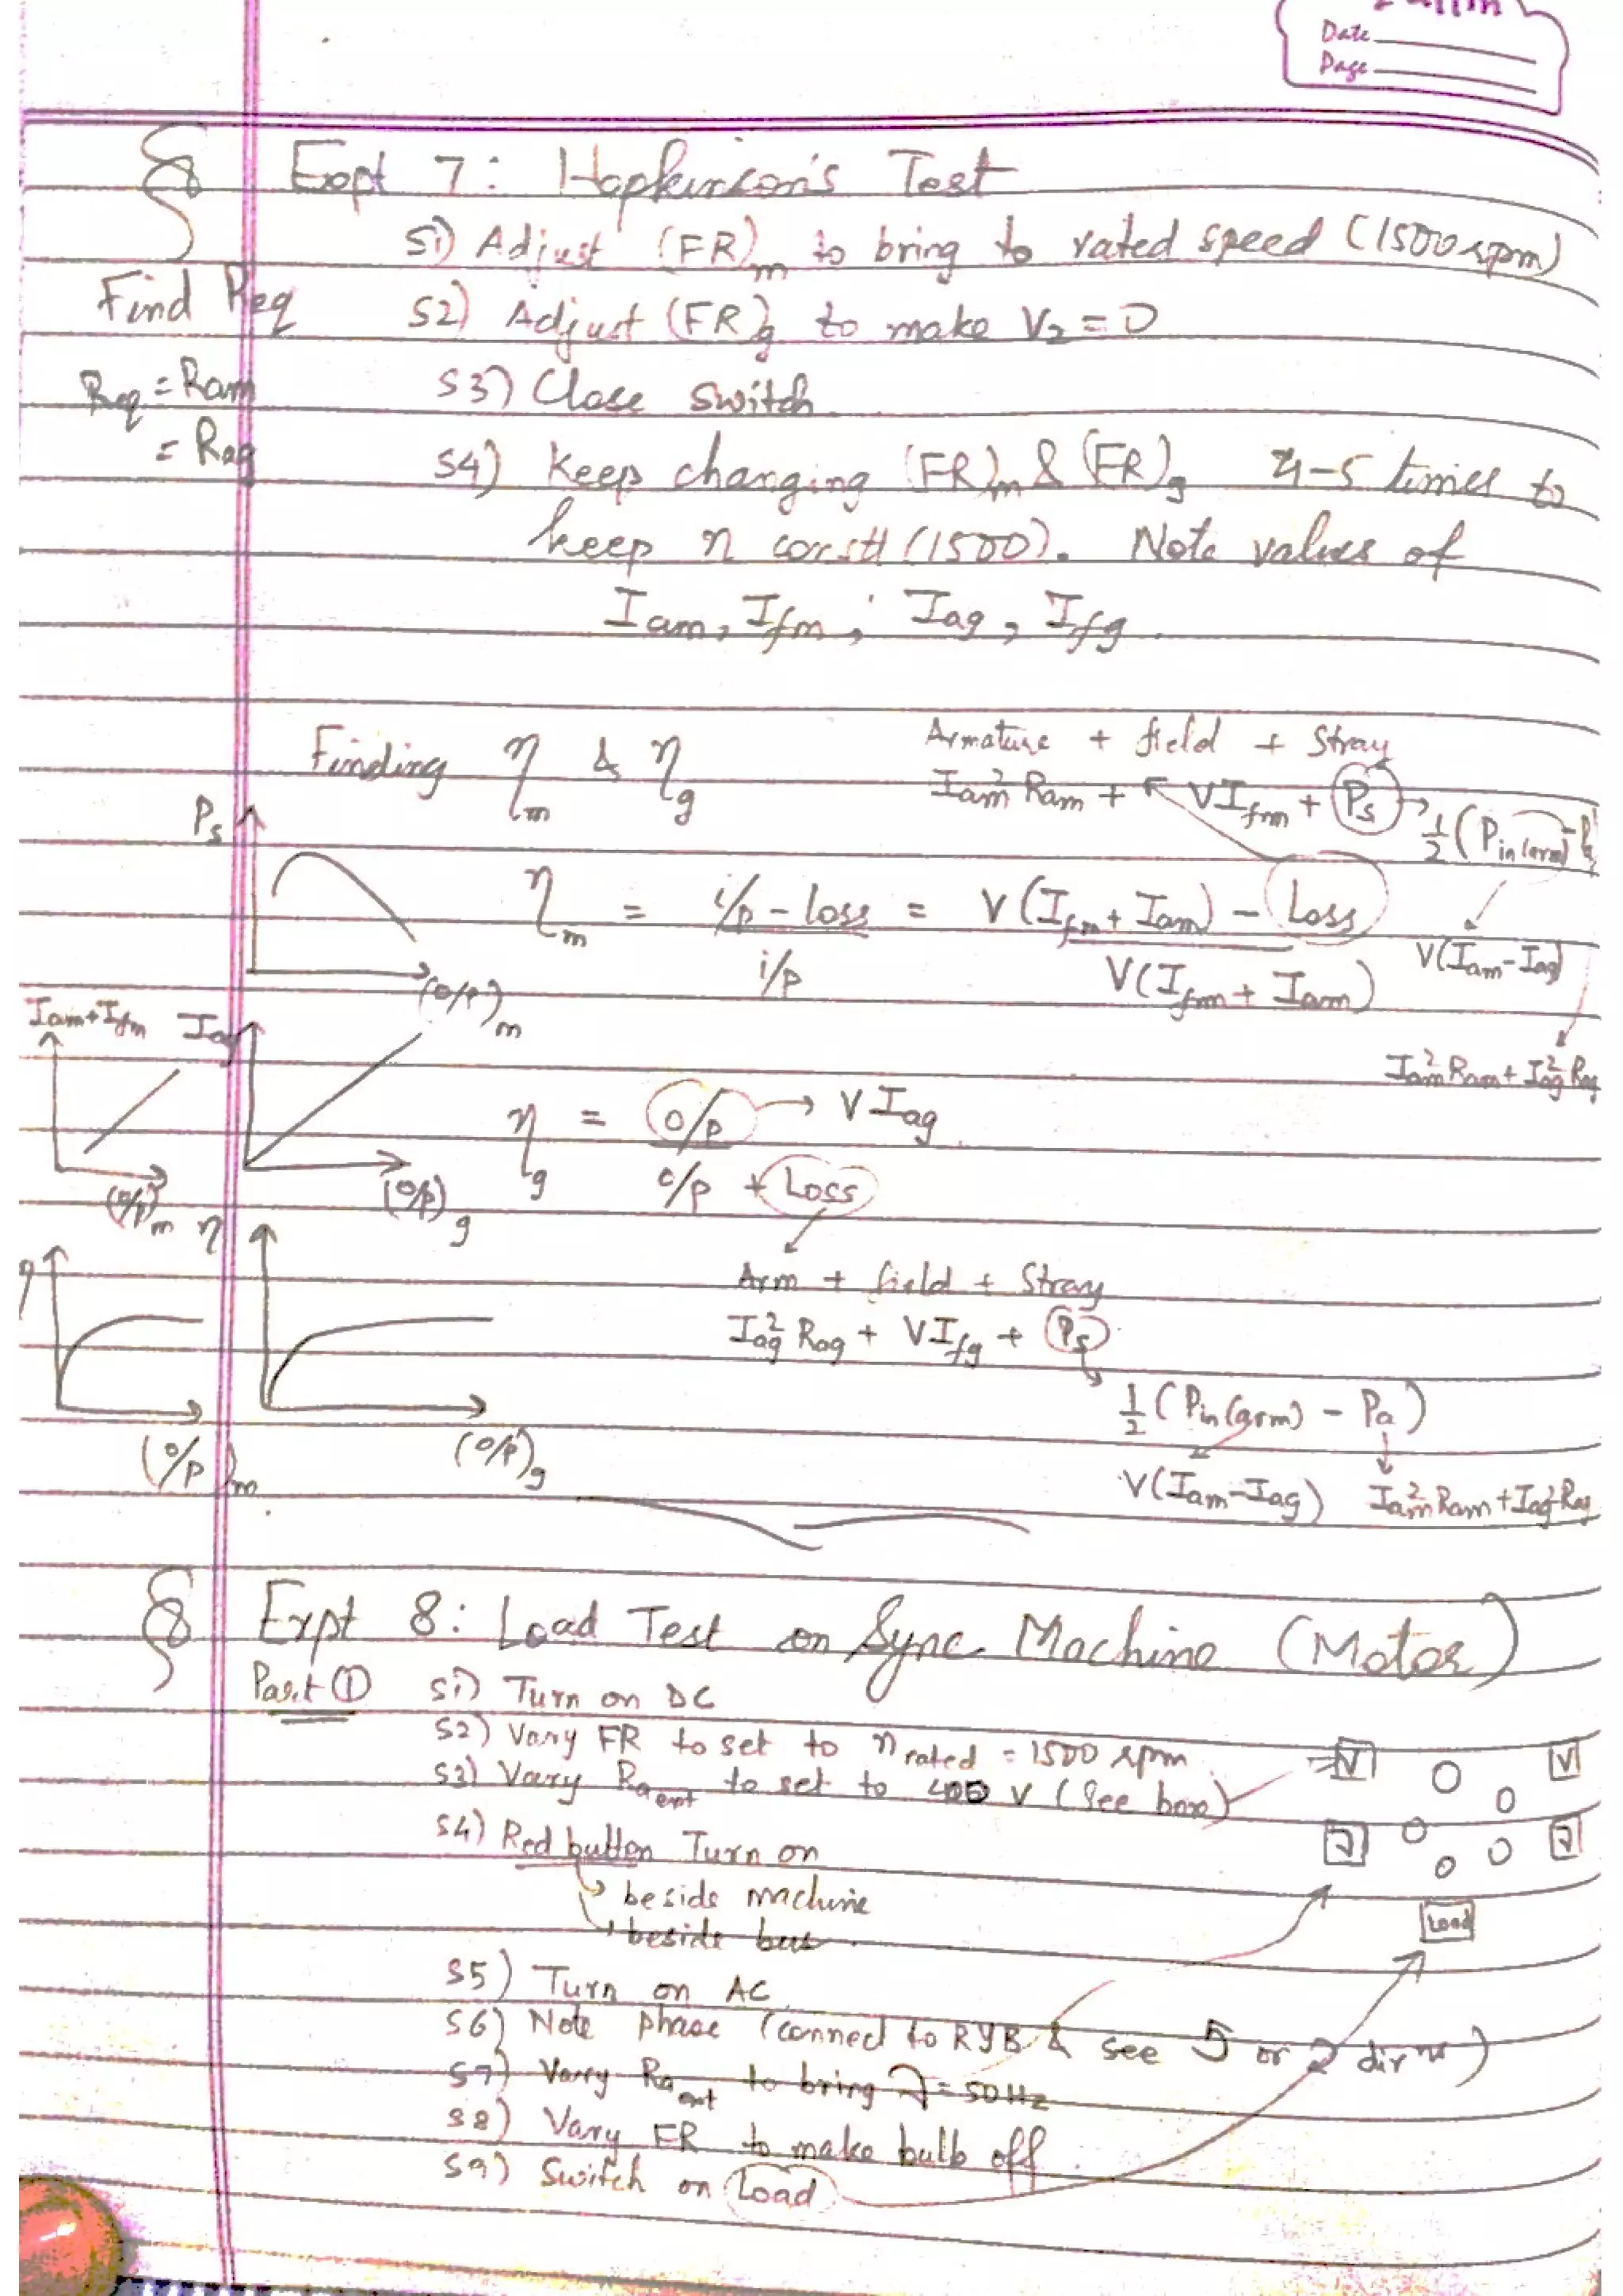 Date
Page
Expt 7: Hopkinson's Test
S1) Adjust (FR)m to bring to rated speed (1500 rpm)
Find Req
S2) Adjust (FR)g to make V2 = 0
Req = Ram
= Rag
S3) Close switch
S4) Keep changing (FR)m & (FR)g 4-5 times to
keep n constt (1500). Note values of
Iam, Ifm, Iag, Ifg.
Finding ηm & ηg
Armature + field + Stray
Iam² Ram + VIfm + Ps → ½ (Pin(arm) -
Ps
(O/P)m
ηm = i/p - loss / i/p = V(Ifm + Iam) - Loss / V(Ifm + Iam)
V(Iam - Iag)
Iam² Ram + Iag² Rag
Iam + Ifm
Iag
(O/P)m
(O/P)g
ηg = o/p → VIag
o/p + Loss
Arm + field + Stray
Iag² Rag + VIfg + Ps
½ (Pin(arm) - Pa)
V(Iam - Iag) Iam² Ram + Iag² Rag
η
η
(O/P)m
(O/P)g
Expt 8: Load Test on Sync. Machine (Motor)
Part ①
S1) Turn on DC
S2) Vary FR to set to n rated = 1500 rpm
S3) Vary Ra ext to set to 400 V (See box)
S4) Red button Turn on
→ beside machine
→ beside bus
S5) Turn on AC
S6) Note phase (connect to RYB & see ↺ or ↻ dirns)
S7) Vary Ra ext to bring f = 50Hz
S8) Vary FR to make bulb off.
S9) Switch on Load
V V
Load